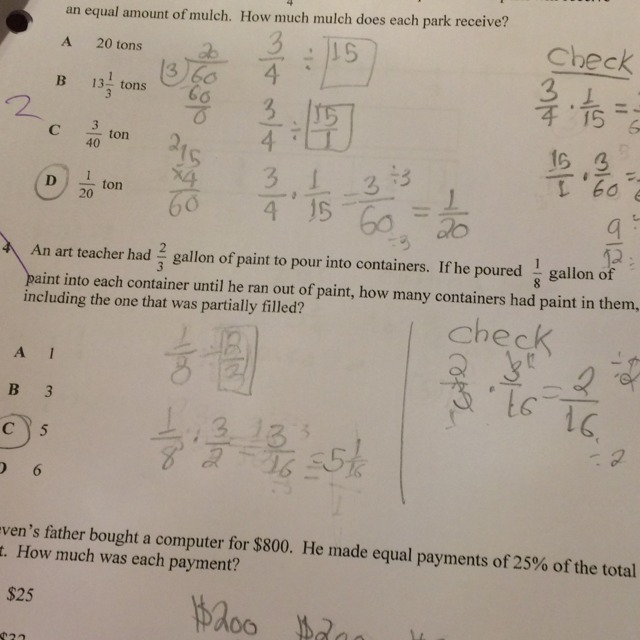 an equal amount of mulch. How much mulch does each park receive?
A 20 tons
B 13 1/3 tons
C 3/40 ton
D 1/20 ton
2
20
3)60
60
0
2
15
x4
60
3/4 ÷ 15
3/4 ÷ 15/1
3/4 · 1/15 = 3/60 ÷3 = 1/20
check
3/4 · 1/15 =
15/1 · 3/60 =
9/12
4 An art teacher had 2/3 gallon of paint to pour into containers. If he poured 1/8 gallon of
paint into each container until he ran out of paint, how many containers had paint in them,
including the one that was partially filled?
A 1
B 3
C 5
D 6
1/8
1/8 · 3/2 = 3/16 = 5 1/16
check
2/3 · 3/16 = 2/16 ÷2
÷2
even's father bought a computer for $800. He made equal payments of 25% of the total
t. How much was each payment?
$25
$200